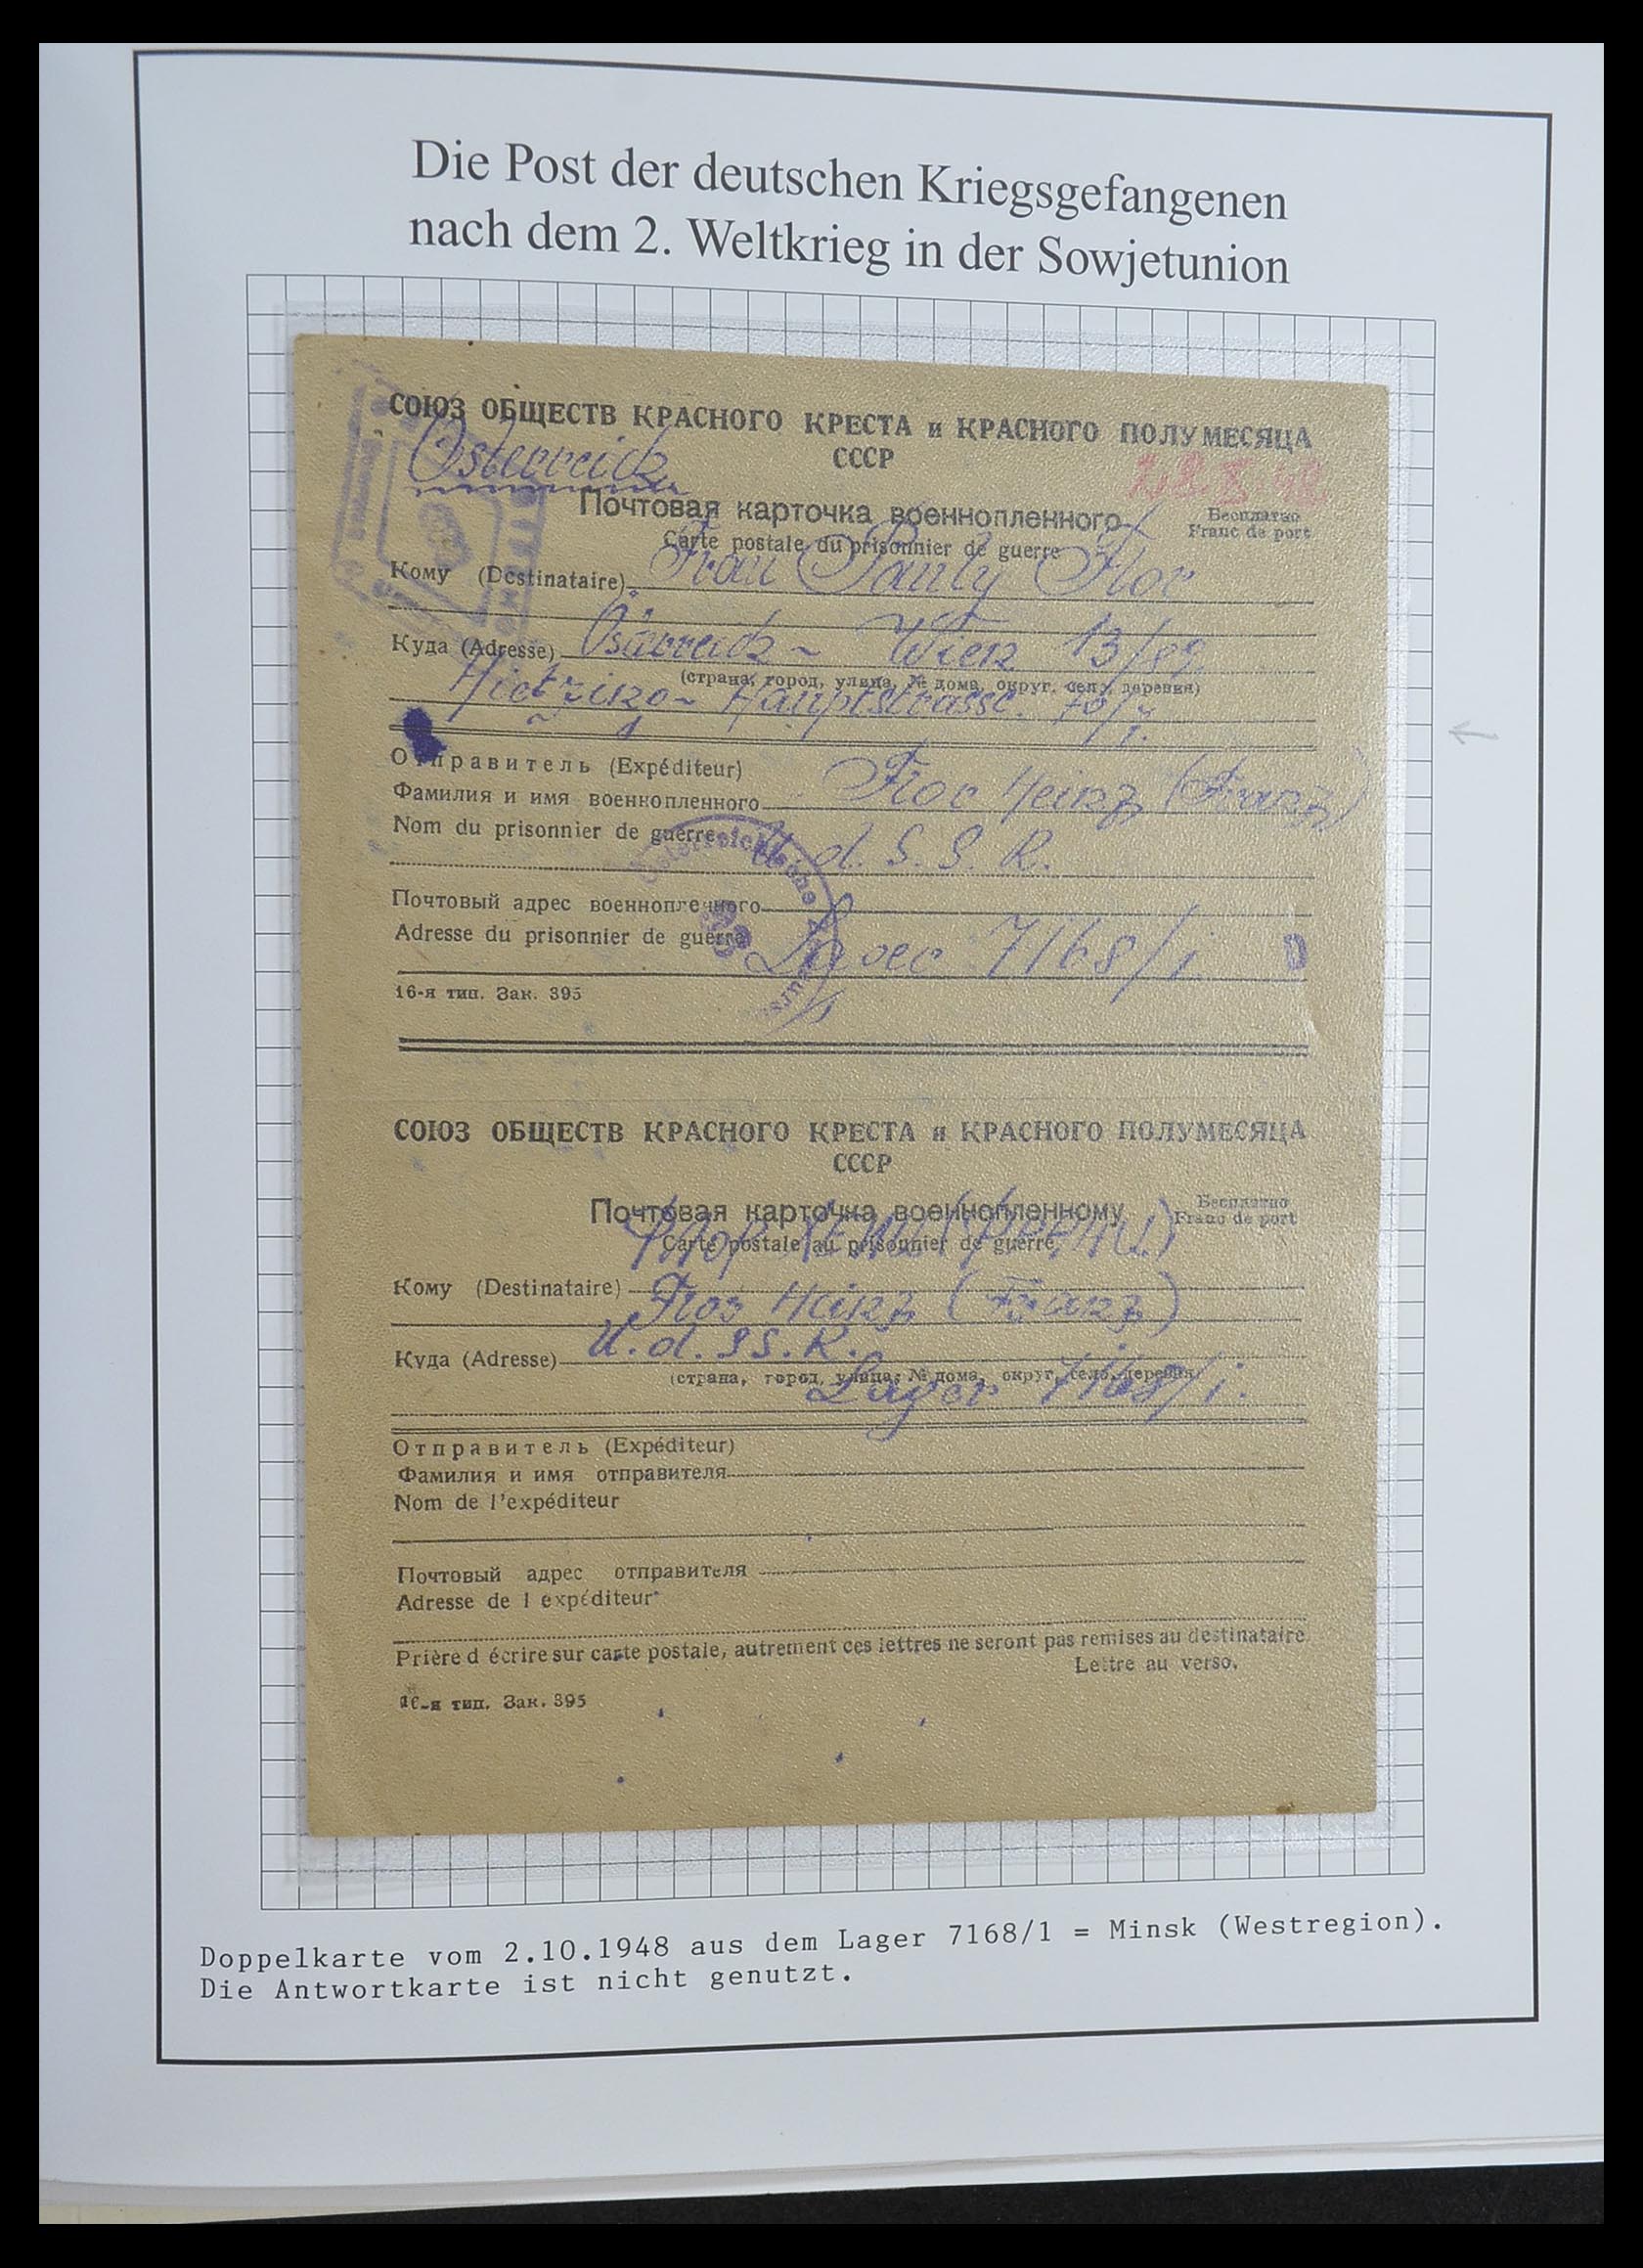 Die Post der deutschen Kriegsgefangenen
nach dem 2. Weltkrieg in der Sowjetunion
СОЮЗ ОБЩЕСТВ КРАСНОГО КРЕСТА и КРАСНОГО ПОЛУМЕСЯЦА
СССР
Österreich
Почтовая карточка военнопленного
Бесплатно
Carte postale du prisonnier de guerre
Franc de port
Кому (Destinataire) Frau Pauly Flor
Куда (Adresse) Wien 13/89
(страна, город, улица, № дома, округ, село, деревня)
Hietzing - Hauptstrasse
Отправитель (Expéditeur)
Фамилия и имя военнопленного Flor Heinz (Franz)
Nom du prisonnier de guerre U. d. S. S. R.
Почтовый адрес военнопленного
Adresse du prisonnier de guerre Lager 7168/1
16-я тип. Зак. 395
СОЮЗ ОБЩЕСТВ КРАСНОГО КРЕСТА и КРАСНОГО ПОЛУМЕСЯЦА
СССР
Почтовая карточка военнопленному
Бесплатно
Carte postale au prisonnier de guerre
Franc de port
Кому (Destinataire) Flor Heinz (Franz)
Куда (Adresse) U. d. SS. R.
(страна, город, улица, № дома, округ, село, деревня)
Lager 7168/1.
Отправитель (Expéditeur)
Фамилия и имя отправителя
Nom de l'expéditeur
Почтовый адрес отправителя
Adresse de l expéditeur
Prière d écrire sur carte postale, autrement ces lettres ne seront pas remises au destinataire
Lettre au verso.
16-я тип. Зак. 395
Doppelkarte vom 2.10.1948 aus dem Lager 7168/1 = Minsk (Westregion).
Die Antwortkarte ist nicht genutzt.